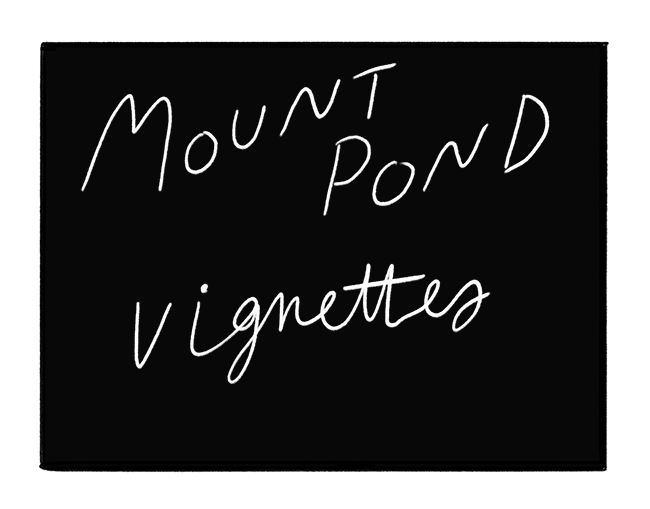 MOUNT
POND
Vignettes